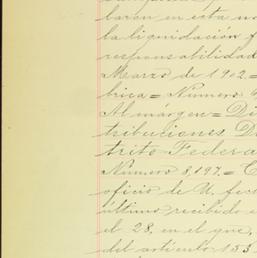 baron en esta
la liquidacion
responsabilidad
Marzo de 1902=
brica= Numero
Al márgen= Di
tribuciones D
trito Federa
Numero 8,197.= C
oficio de U. fec
último recibido
el 28, en el que,
del artículo 153